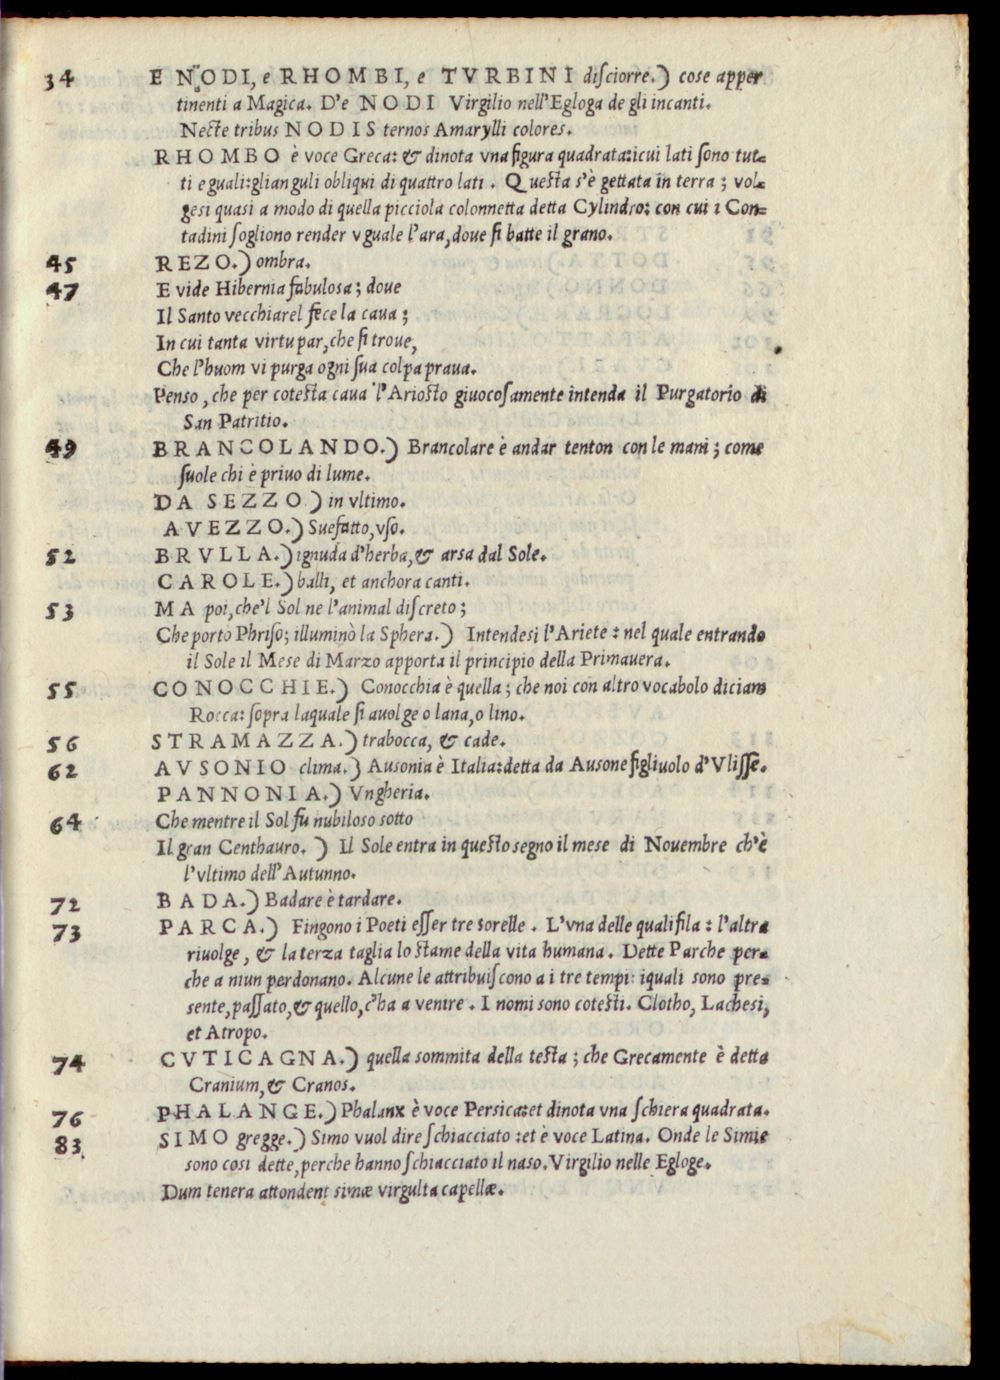 34 E NODI, e RHOMBI, e TVRBINI diſciorre.) coſe apper
tinenti a Magica. D'e NODI Virgilio nell'Egloga de gli incanti.
Necte tribus NODIS ternos Amarylli colores.
RHOMBO è voce Greca: & dinota vna figura quadrata: i cui lati ſono tut-
ti eguali: gli anguli obliqui di quattro lati. Queſta s'è gettata in terra; vol-
geſi quaſi a modo di quella picciola colonnetta detta Cylindro: con cui i Con-
tadini ſogliono render vguale l'ara, doue ſi batte il grano.
45 REZO.) ombra.
47 E vide Hibernia fabulosa; doue
Il Santo vecchiarel fece la caua;
In cui tanta virtu par, che ſi troue,
Che l'huom vi purga ogni ſua colpa praua.
Penso, che per coteſta caua l'Arioſto giuocoſamente intenda il Purgatorio di
San Patritio.
49 BRANCOLANDO.) Brancolare è andar tenton con le mani; come
ſuole chi è priuo di lume.
DA SEZZO.) in vltimo.
AVEZZO.) Suefatto, vſo.
52 BRVLLA.) ignuda d'herba, & arsa dal Sole.
CAROLE.) balli, et anchora canti.
53 MA poi, che'l Sol ne l'animal diſcreto;
Che portò Phriſo; illuminò la Sphera.) Intendeſi l'Ariete: nel quale entrando
il Sole il Mese di Marzo apporta il principio della Primauera.
55 CONOCCHIE.) Conocchia è quella; che noi con altro vocabolo diciam
Rocca: ſopra laquale ſi auolge o lana, o lino.
56 STRAMAZZA.) trabocca, & cade.
62 AVSONIO clima.) Ausonia è Italia: detta da Ausone figliuolo d'Vliſſe.
PANNONIA.) Vngheria.
64 Che mentre il Sol fu nubiloso sotto
Il gran Centhauro.) Il Sole entra in queſto segno il mese di Nouembre ch'è
l'vltimo dell'Autunno.
72 BADA.) Badare è tardare.
73 PARCA.) Fingono i Poeti eſſer tre sorelle. L'vna delle quali fila: l'altra
riuolge, & la terza taglia lo ſtame della vita humana. Dette Parche per-
che a niun perdonano. Alcune le attribuiſcono a i tre tempi: iquali sono pre-
sente, paſſato, & quello, c'ha a venire. I nomi sono coteſti. Clotho, Lachesi,
et Atropo.
74 CVTICAGNA.) quella sommita della teſta; che Grecamente è detta
Cranium, & Cranos.
76 PHALANGE.) Phalanx è voce Persica: et dinota vna ſchiera quadrata.
83 SIMO gregge.) Simo vuol dire ſchiacciato: et è voce Latina. Onde le Simie
sono così dette, perche hanno ſchiacciato il naso. Virgilio nelle Egloge.
Dum tenera attondent simæ virgulta capellæ.